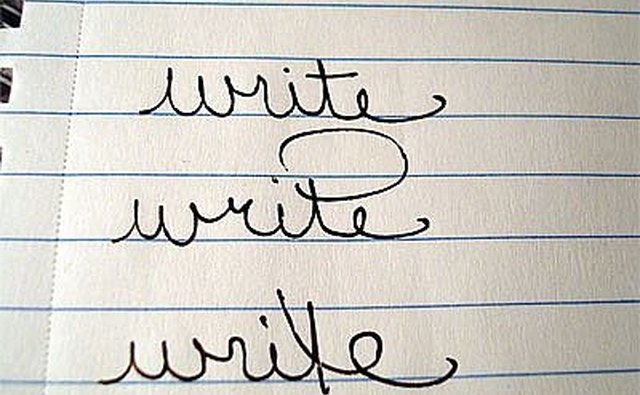 write
write
write